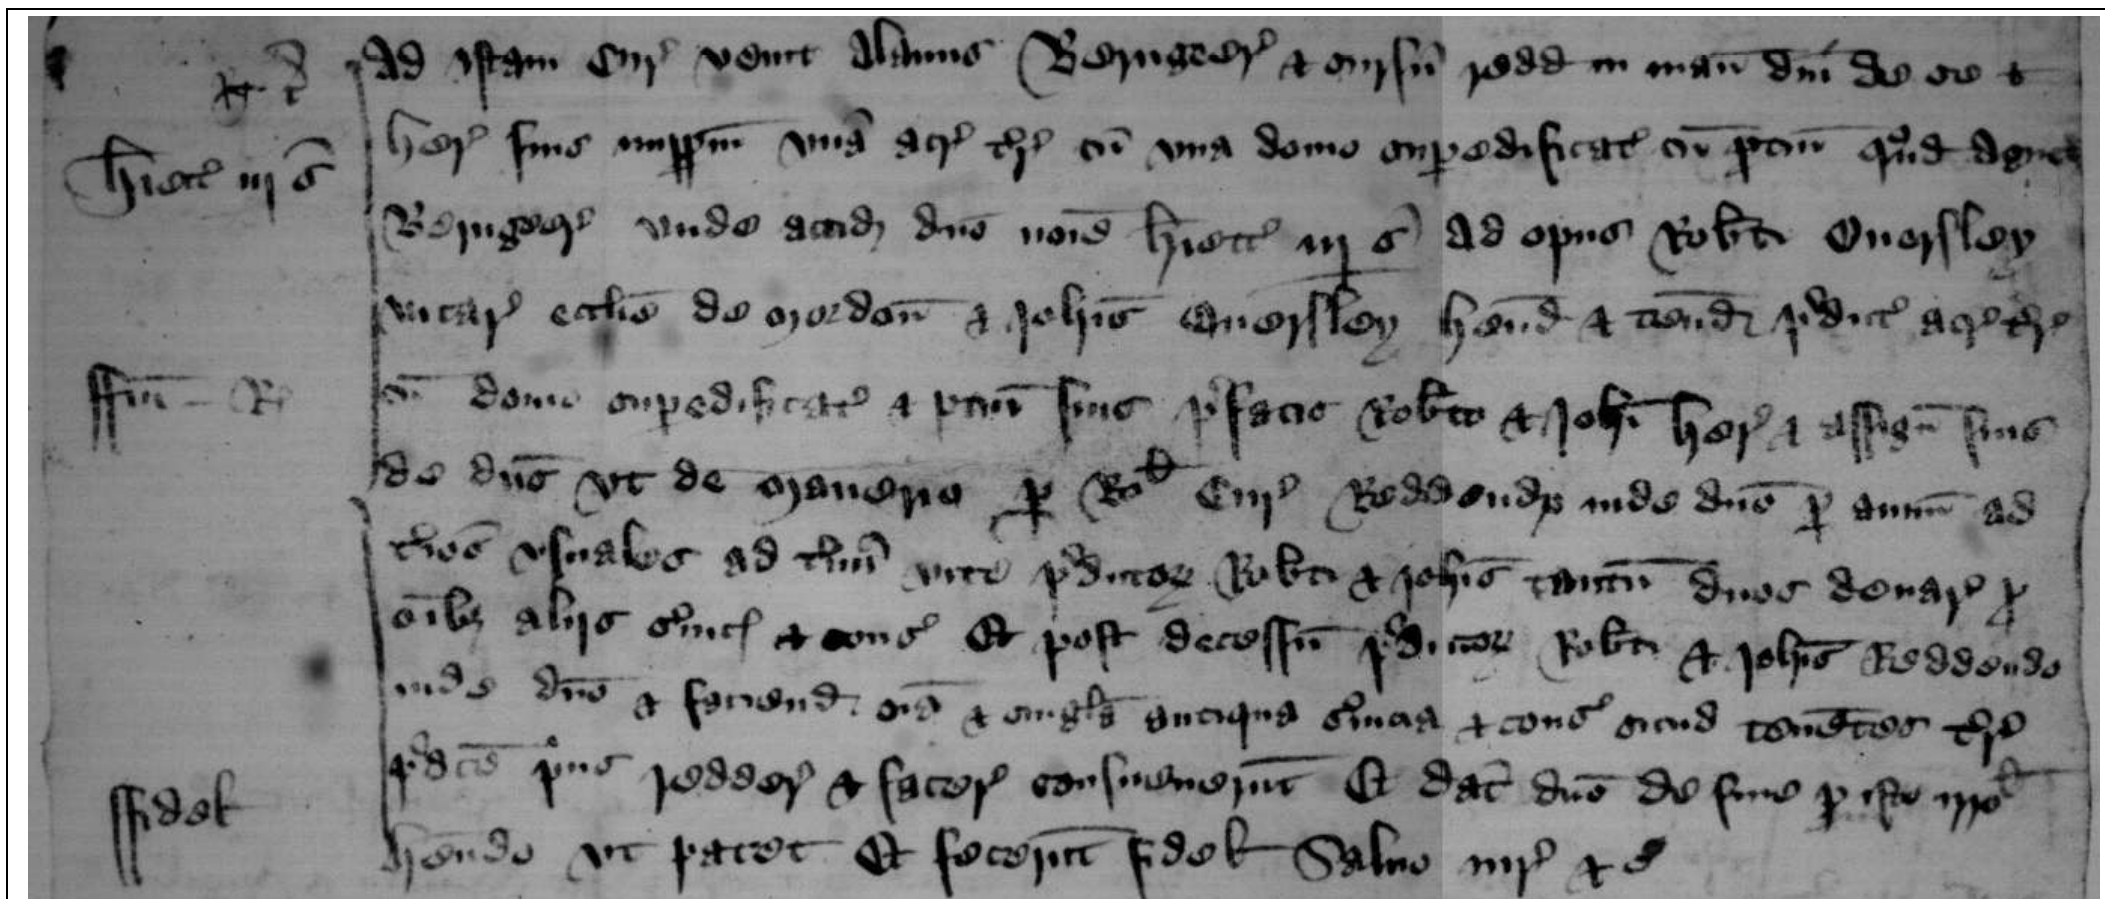 Ad istam Cur' venit Alanus Berngeer' & sursu' redd in man' dni de se &
Heriet' iij s her' suis imppm una' acr' t're cu' una domo sup'edificat' cu' ptin' q'nd Agnet
Berngeer' unde accid dno no'ie heriett' iij s Ad opus Rob'ti Eversley
vicar' ecclie de Mordon' & Joh'is Eversley h'end & tenend p'dict' acr' t're
ffin' cu' domo sup'edificat' & ptin' suis p'fatis Rob'to & Joh'i her' & assign' suis
de dno ut de Manerio p Ro Cur' Reddend inde dno p annu' ad
t'i'os usuales ad t'i'm vite p'dictor Rob'ti & Joh'is tantu' duos denar' p
o'ib3 aliis s'vic' & cons' Et post decessu' p'dictor Rob'ti & Joh'is Reddendo
inde dno & faciend o'ia & singl'a antiqua s'vicia & cons' sicud tenentes t're
p'dce p'us redder' & facer' consueverunt Et dat dno de fine p isto
ffidel h'endo ut patet Et fecerunt fidel Salvo iur' &c